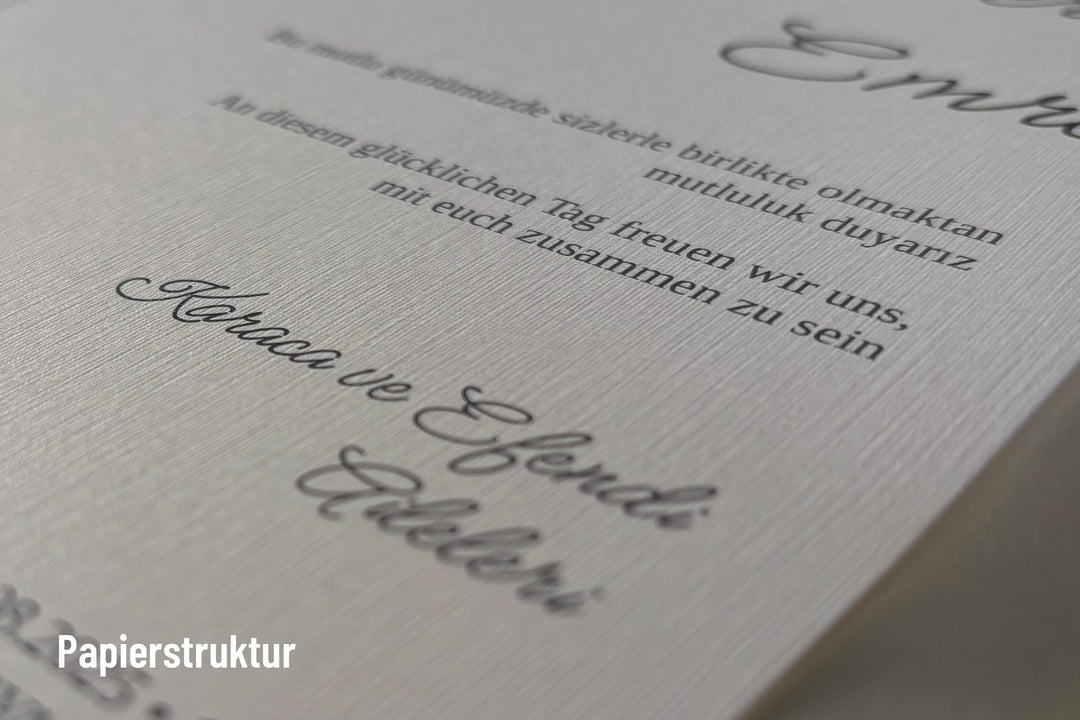 Emre
Bu mutlu günümüzde sizlerle birlikte olmaktan
mutluluk duyarız
An diesem glücklichen Tag freuen wir uns,
mit euch zusammen zu sein
Karaca ve Efendi
Aileleri
Papierstruktur